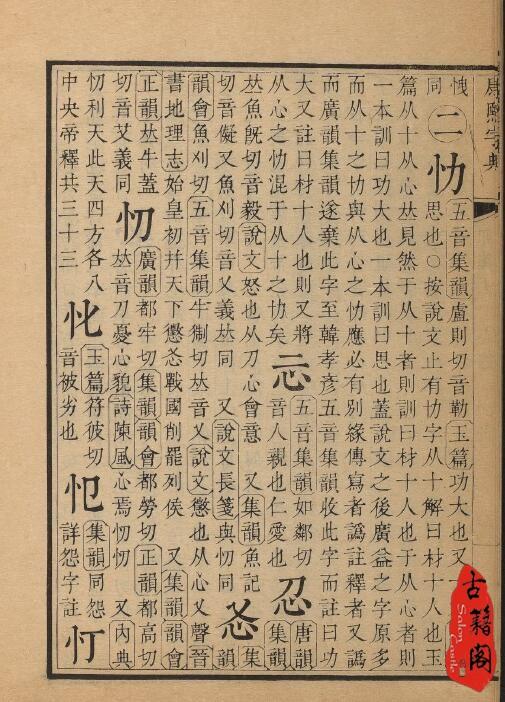 愧
同
㊁
忇
五音集韻盧則切音勒玉篇功大也又
思也○按說文止有忇字从十解曰材十人也玉
篇从十从心𠀤見然于从十者則訓曰材十人也于从心者則
一本訓曰功大也一本訓曰思也蓋說文之後廣益之字原多
而从十之忇與从心之忇應必有别緣傳寫者譌註釋者又譌
而廣韻集韻遂棄此字至韓孝彥五音集韻收此字而註曰功
大又註曰材十人也則又將
从心之忇混于从十之忇矣
忈
五音集韻如鄰切
音人親也仁愛也
忍
唐韻
集韻
𠀤魚旣切音毅說文怒也从刀心會意 又集韻魚記
切音儗又魚刈切音乂義𠀤同 又說文長箋與忉同
㣻
韻
韻會魚刈切五音集韻牛制切𠀤音乂說文懲也从心乂聲晉
書地理志始皇初幷天下懲㣻戰國削罷列侯 又集韻韻會
正韻𠀤牛蓋
切音艾義同
忉
廣韻都牢切集韻韻會都勞切正韻都高切
𠀤音刀憂心貌詩陳風心焉忉忉 又內典
忉利天此天四方各八
中央帝釋共三十三
玉篇符彼切
音被劣也
集韻同怨
詳怨字註
忊
康熙字典
古籍阁
Salon Castle